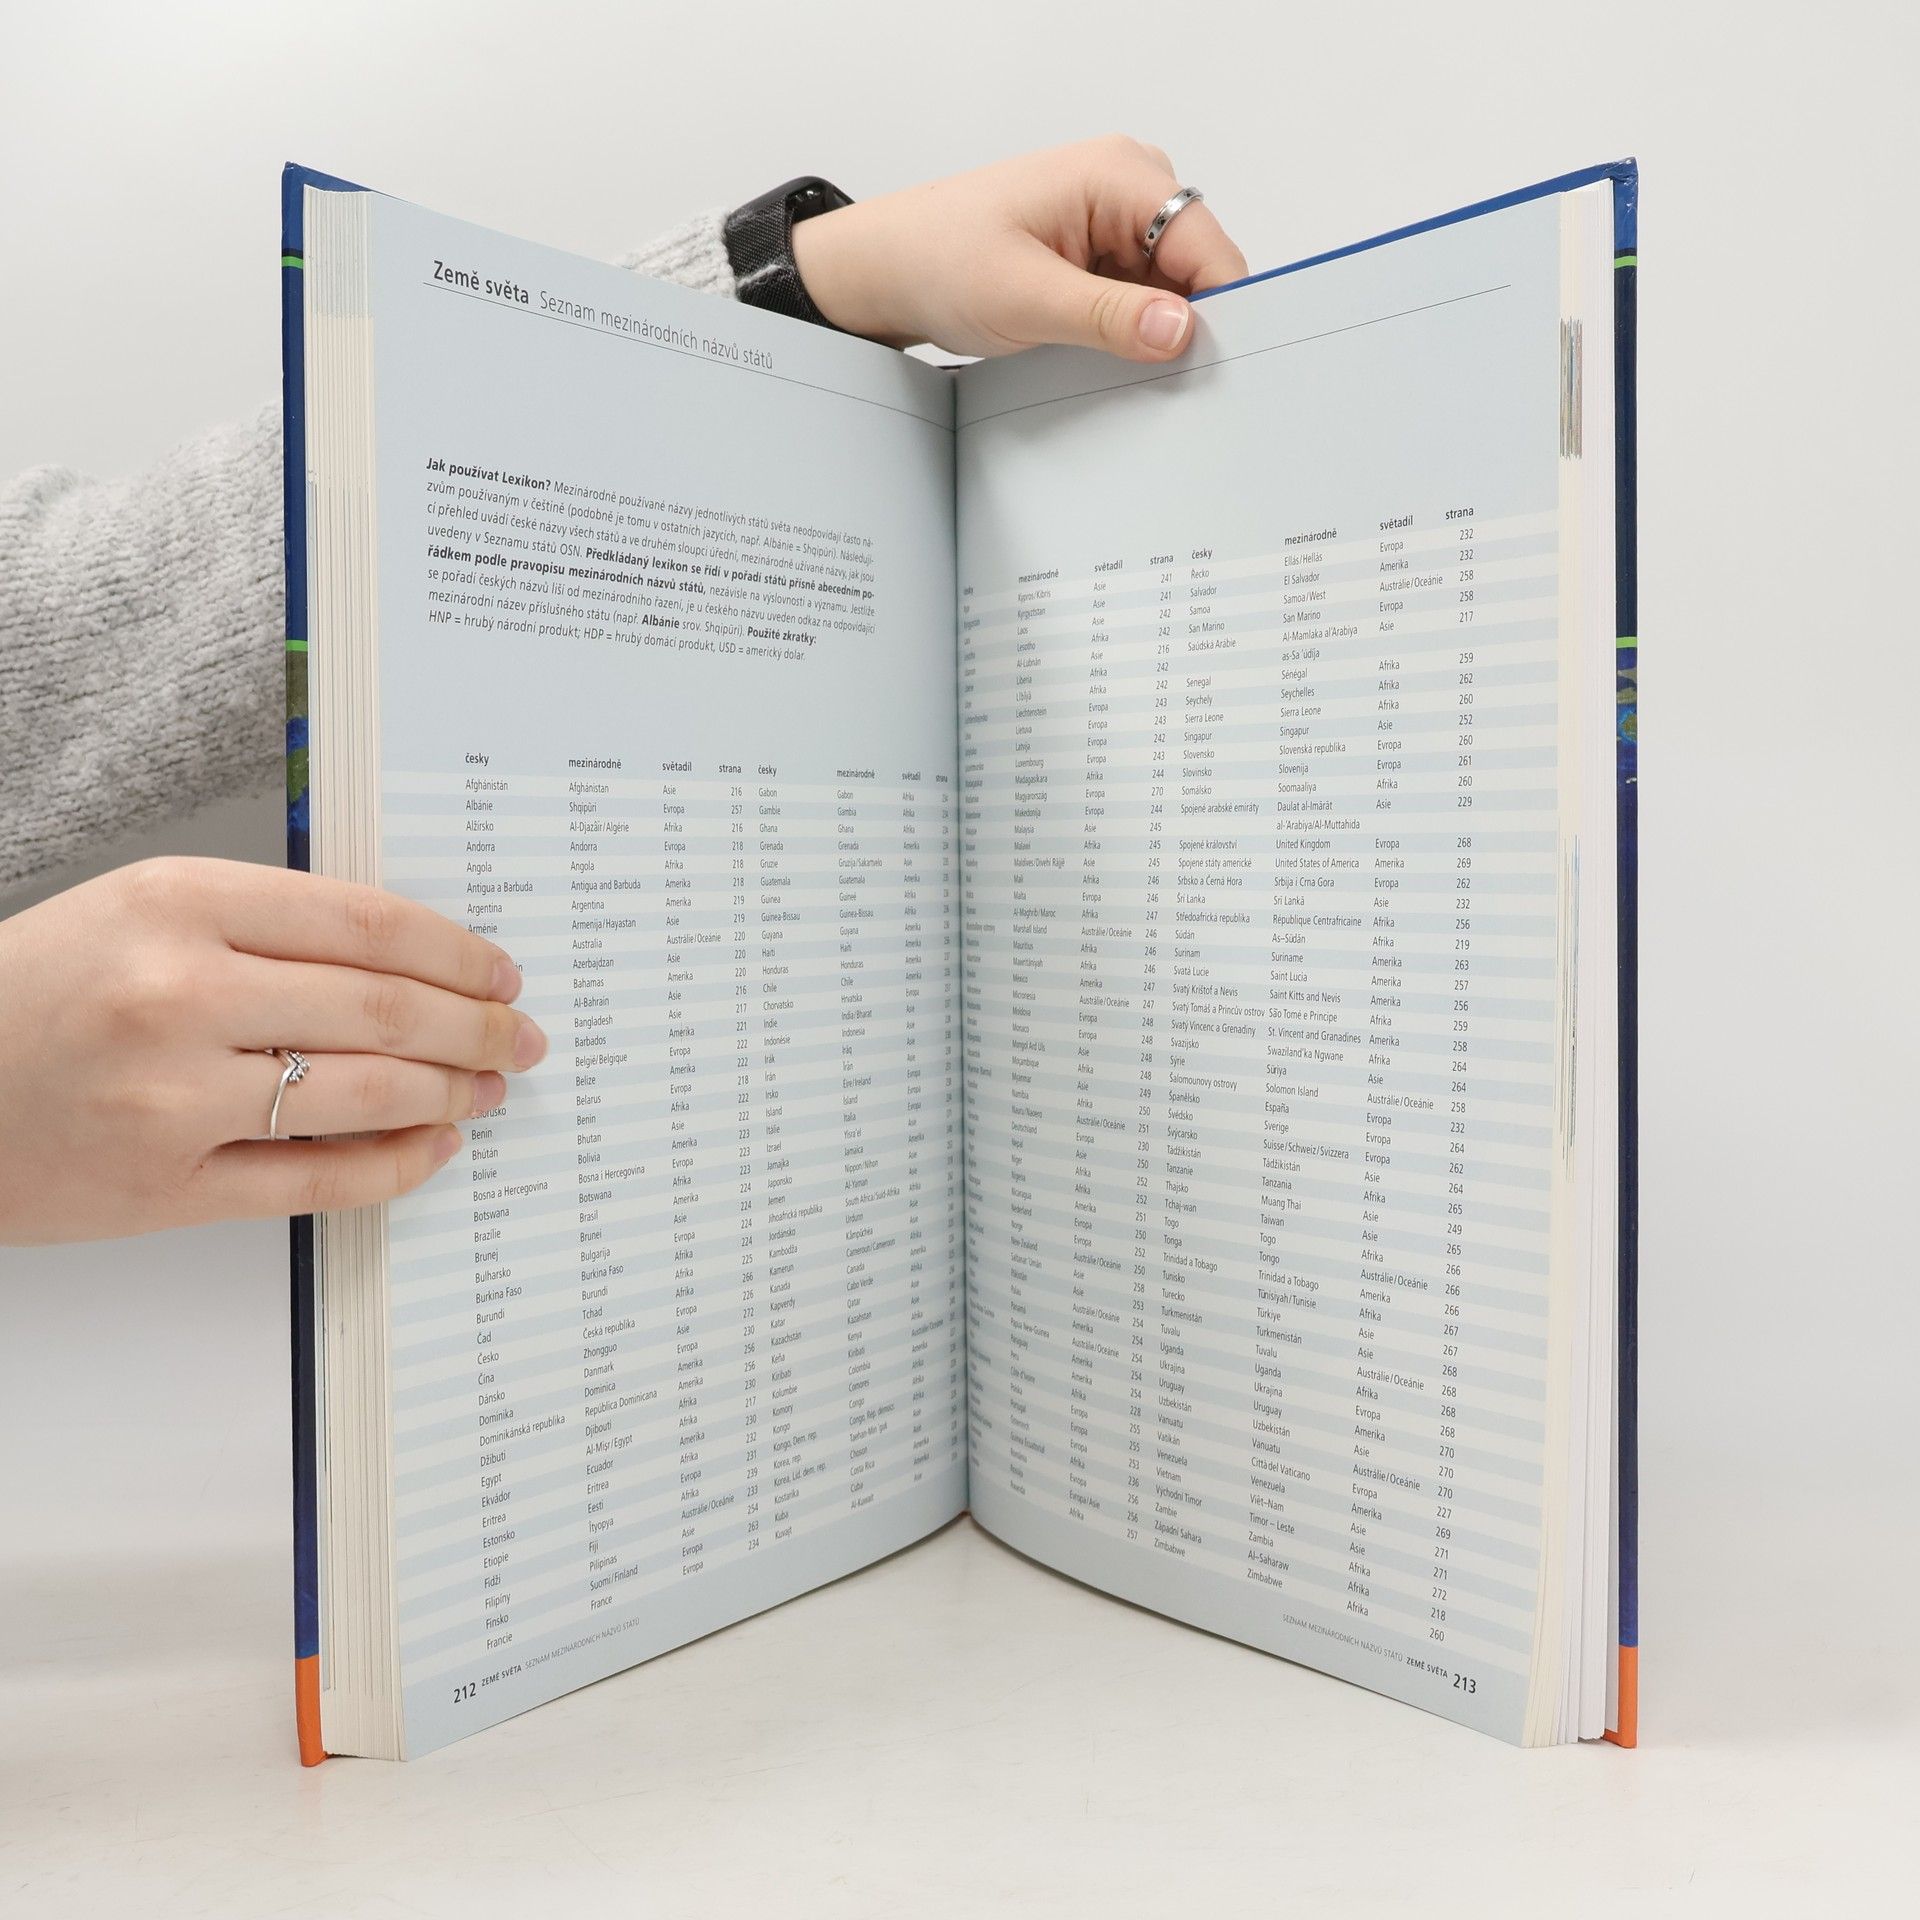 Země světa Seznam mezinárodních názvů států
Jak používat Lexikon? Mezinárodně používané názvy jednotlivých států světa neodpovídají často ná-
zvům používaným v češtině (podobně je tomu v ostatních jazycích, např. Albánie = Shqipüri). Následují-
cí přehled uvádí české názvy všech států a ve druhém sloupci úřední, mezinárodně užívané názvy, jak jsou
uvedeny v Seznamu států OSN. Předkládaný lexikon se řídí v pořadí států přísně abecedním po-
řádkem podle pravopisu mezinárodních názvů států, nezávisle na výslovnosti a významu. Jestliže
se pořadí českých názvů liší od mezinárodního řazení, je u českého názvu uveden odkaz na odpovídající
mezinárodní název příslušného státu (např. Albánie srov. Shqipüri). Použité zkratky:
HNP = hrubý národní produkt; HDP = hrubý domácí produkt, USD = americký dolar.
česky mezinárodně světadíl strana
Afghánistán Afghánistan Asie 216
Albánie Shqipüri Evropa 257
Alžírsko Al-Djazâir/Algérie Afrika 216
Andorra Andorra Evropa 218
Angola Angola Afrika 218
Antigua a Barbuda Antigua and Barbuda Amerika 218
Argentina Argentina Amerika 219
Arménie Armenija/Hayastan Asie 219
Australia Austrálie/Oceánie 220
Azerbajdzan Asie 220
Bahamas Amerika 220
Al-Bahrain Asie 216
Bangladesh Asie 217
Barbados Amerika 221
België/Belgique Evropa 222
Belize Amerika 222
Belarus Evropa 218
Benin Benin Afrika 222
Bhútán Bhutan Asie 222
Bolívie Bolivia Amerika 223
Bosna a Hercegovina Bosna i Hercegovina Evropa 223
Botswana Botswana Afrika 224
Brazílie Brasil Amerika 224
Brunej Brunei Asie 224
Bulharsko Bulgarija Evropa 224
Burkina Faso Burkina Faso Afrika 225
Burundi Burundi Afrika 226
Čad Tchad Afrika 266
Česko Česká republika Evropa 226
Čína Zhongguo Asie 272
Dánsko Danmark Evropa
Dominika Dominica Amerika
Dominikánská republika República Dominicana Amerika
Džibuti Djibouti Afrika
Egypt Al-Misr/Egypt Afrika
Ekvádor Ecuador Amerika
Eritrea Eritrea Afrika
Estonsko Eesti Evropa
Etiopie Ityopya Afrika
Fidži Fiji Austrálie/Oceánie
Filipíny Pilipinas Asie
Finsko Suomi/Finland Evropa
Francie France Evropa 234
česky mezinárodně světadíl strana
Gabon Gabon Afrika
Gambie Gambia Afrika
Ghana Ghana Afrika
Grenada Grenada Amerika
Gruzie Gruzija/Sakamelo Asie
Guatemala Guatemala Amerika
Guinea Guineé Afrika
Guinea-Bissau Guinea-Bissau Afrika
Guyana Guyana Amerika
Haiti Haïti Amerika
Honduras Honduras Amerika
Chile Chile Amerika
Chorvatsko Hrvatska Evropa
Indie India/Bharat Asie
Indonésie Indonesia Asie
Irák Iráq Asie
Írán Írán Asie
Irsko Éire/Ireland Evropa
Island Ísland Evropa
Itálie Italia Evropa
Izrael Yisra'el Asie
Jamajka Jamaica Amerika
Japonsko Nippon/Nihon Asie
Jemen Al-Yaman Asie
Jihoafrická republika South Africa/Suid-Afrika Afrika
Jordánsko Urdunn Asie
Kambodža Kâmpŭchéa Asie
Kamerun Cameroun/Cameroon Afrika
Kanada Canada Amerika
Kapverdy Cabo Verde Afrika
Katar Qatar Asie
Kazachstán Kazahstan Asie
Keňa Kenya Afrika
Kiribati Kiribati Austrálie/Oceánie
Kolumbie Colombia Amerika
Komory Comores Afrika
Kongo Congo Afrika
Kongo, Dem. rep. Congo, Rép. démocr. Afrika
Korea, rep. Taehan-Min'guk Asie
Korea, Lid. dem. rep. Choson Asie
Kostarika Costa Rica Amerika
Kuba Cuba Amerika
Kuvajt Al-Kuwait Asie
212 ZEMĚ SVĚTA SEZNAM MEZINÁRODNÍCH NÁZVŮ STÁTŮ
mezinárodně světadíl strana
Kypros/Kibris Asie 241
Kyrgyzstan Asie 241
Laos Asie 242
Lesotho Afrika 242
Al-Lubnán Asie 216
Liberia Afrika 242
Libïyá Afrika 242
Liechtenstein Evropa 243
Lietuva Evropa 243
Latvija Evropa 242
Luxembourg Evropa 243
Madagasikara Afrika 244
Magyarország Evropa 270
Makedonija Evropa 244
Malaysia Asie 245
Malawi Afrika 245
Maldives/Divehi Rájjé Asie 245
Mali Afrika 246
Malta Evropa 246
Al-Maghrib/Maroc Afrika 247
Marshall Island Austrálie/Oceánie 246
Mauritius Afrika 246
Afrika 246
México Amerika 247
Micronesia Austrálie/Oceánie 247
Moldova Evropa 248
Monaco Evropa 248
Mongol Ard Uls Asie 248
Moçambique Afrika 248
Myanmar Asie 249
Namibia Afrika 250
Nauru/Naoero Austrálie/Oceánie 251
Deutschland Evropa 230
Nepal Asie 250
Niger Afrika 252
Nigeria Afrika 252
Nicaragua Amerika 251
Nederland Evropa 250
Norge Evropa 252
New-Zealand Austrálie/Oceánie 250
Asie 258
Pákistán Asie 253
Palau Austrálie/Oceánie 254
Panamá Amerika 254
Papua New-Guinea Austrálie/Oceánie 254
Paraguay Amerika 254
Peru Amerika 254
Côte d'Ivoire Afrika 228
Polska Evropa 255
Portugal Evropa 255
Österreich Evropa 253
Guinea Ecuatorial Afrika 236
România Evropa 256
Rossija Evropa/Asie 256
Rwanda Afrika 257
česky mezinárodně světadíl strana
Řecko Ellás/Hellás Evropa 232
Salvador El Salvador Amerika 232
Samoa Samoa/West Austrálie/Oceánie 258
San Marino San Marino Evropa 258
Saúdská Arábie Al-Mamlaka al'Arabiya Asie 217
as-Sa 'údíja
Senegal Sénégal Afrika 259
Seychely Seychelles Afrika 262
Sierra Leone Sierra Leone Afrika 260
Singapur Singapur Asie 252
Slovensko Slovenská republika Evropa 260
Slovinsko Slovenija Evropa 261
Somálsko Soomaaliya Afrika 260
Spojené arabské emiráty Daulat al-Imárát Asie 229
al-'Arabiya/Al-Muttahida
Spojené království United Kingdom Evropa 268
Spojené státy americké United States of America Amerika 269
Srbsko a Černá Hora Srbija i Crna Gora Evropa 262
Šrí Lanka Sri Lanká Asie 232
Středoafrická republika République Centrafricaine Afrika 256
Súdán As–Sūdán Afrika 219
Surinam Suriname Amerika 263
Svatá Lucie Saint Lucia Amerika 257
Svatý Krištof a Nevis Saint Kitts and Nevis Amerika 256
Svatý Tomáš a Princův ostrov São Tomé e Principe Afrika 259
Svatý Vincenc a Grenadiny St. Vincent and Granadines Amerika 258
Svazijsko Swaziland'ka Ngwane Afrika 264
Sýrie Sūriya Asie 264
Šalomounovy ostrovy Solomon Island Austrálie/Oceánie 258
Španělsko España Evropa 232
Švédsko Sverige Evropa 264
Švýcarsko Suisse/Schweiz/Svizzera Evropa 262
Tádžikistán Tádžikistán Asie 264
Tanzanie Tanzania Afrika 265
Thajsko Muang Thai Asie 249
Tchaj-wan Taiwan Asie 265
Togo Togo Afrika 266
Tonga Tongo Austrálie/Oceánie 266
Trinidad a Tobago Trinidad a Tobago Amerika 266
Tunisko Tūnisiyah/Tunisie Afrika 267
Turecko Türkiye Asie 267
Turkmenistán Turkmenistán Asie 268
Tuvalu Tuvalu Austrálie/Oceánie 268
Uganda Uganda Afrika 268
Ukrajina Ukrajina Evropa 268
Uruguay Uruguay Amerika 270
Uzbekistán Uzbekistán Asie 270
Vanuatu Vanuatu Austrálie/Oceánie 270
Vatikán Città del Vaticano Evropa 227
Venezuela Venezuela Amerika 269
Vietnam Viêt–Nam Asie 271
Východní Timor Timor – Leste Asie 271
Zambie Zambia Afrika 272
Západní Sahara Al–Saharaw Afrika 218
Zimbabwe Zimbabwe Afrika 260
SEZNAM MEZINÁRODNÍCH NÁZVŮ STÁTŮ ZEMĚ SVĚTA 213